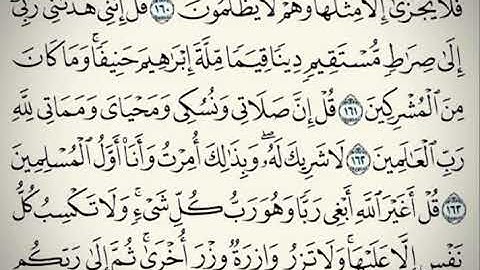 فَلَا يُجْزَىٰٓ إِلَّا مِثْلَهَا وَهُمْ لَا يُظْلَمُونَ ١٦٠ قُلْ إِنَّنِى هَدَىٰنِى رَبِّىٓ
إِلَىٰ صِرَٰطٍ مُّسْتَقِيمٍ دِينًا قِيَمًا مِّلَّةَ إِبْرَٰهِيمَ حَنِيفًا ۚ وَمَا كَانَ
مِنَ ٱلْمُشْرِكِينَ ١٦١ قُلْ إِنَّ صَلَاتِى وَنُسُكِى وَمَحْيَاىَ وَمَمَاتِى لِلَّهِ
رَبِّ ٱلْعَٰلَمِينَ ١٦٢ لَا شَرِيكَ لَهُۥ ۖ وَبِذَٰلِكَ أُمِرْتُ وَأَنَا۠ أَوَّلُ ٱلْمُسْلِمِينَ
١٦٣ قُلْ أَغَيْرَ ٱللَّهِ أَبْغِى رَبًّا وَهُوَ رَبُّ كُلِّ شَىْءٍ ۚ وَلَا تَكْسِبُ كُلُّ
نَفْسٍ إِلَّا عَلَيْهَا ۚ وَلَا تَزِرُ وَازِرَةٌ وِزْرَ أُخْرَىٰ ۚ ثُمَّ إِلَىٰ رَبِّكُم